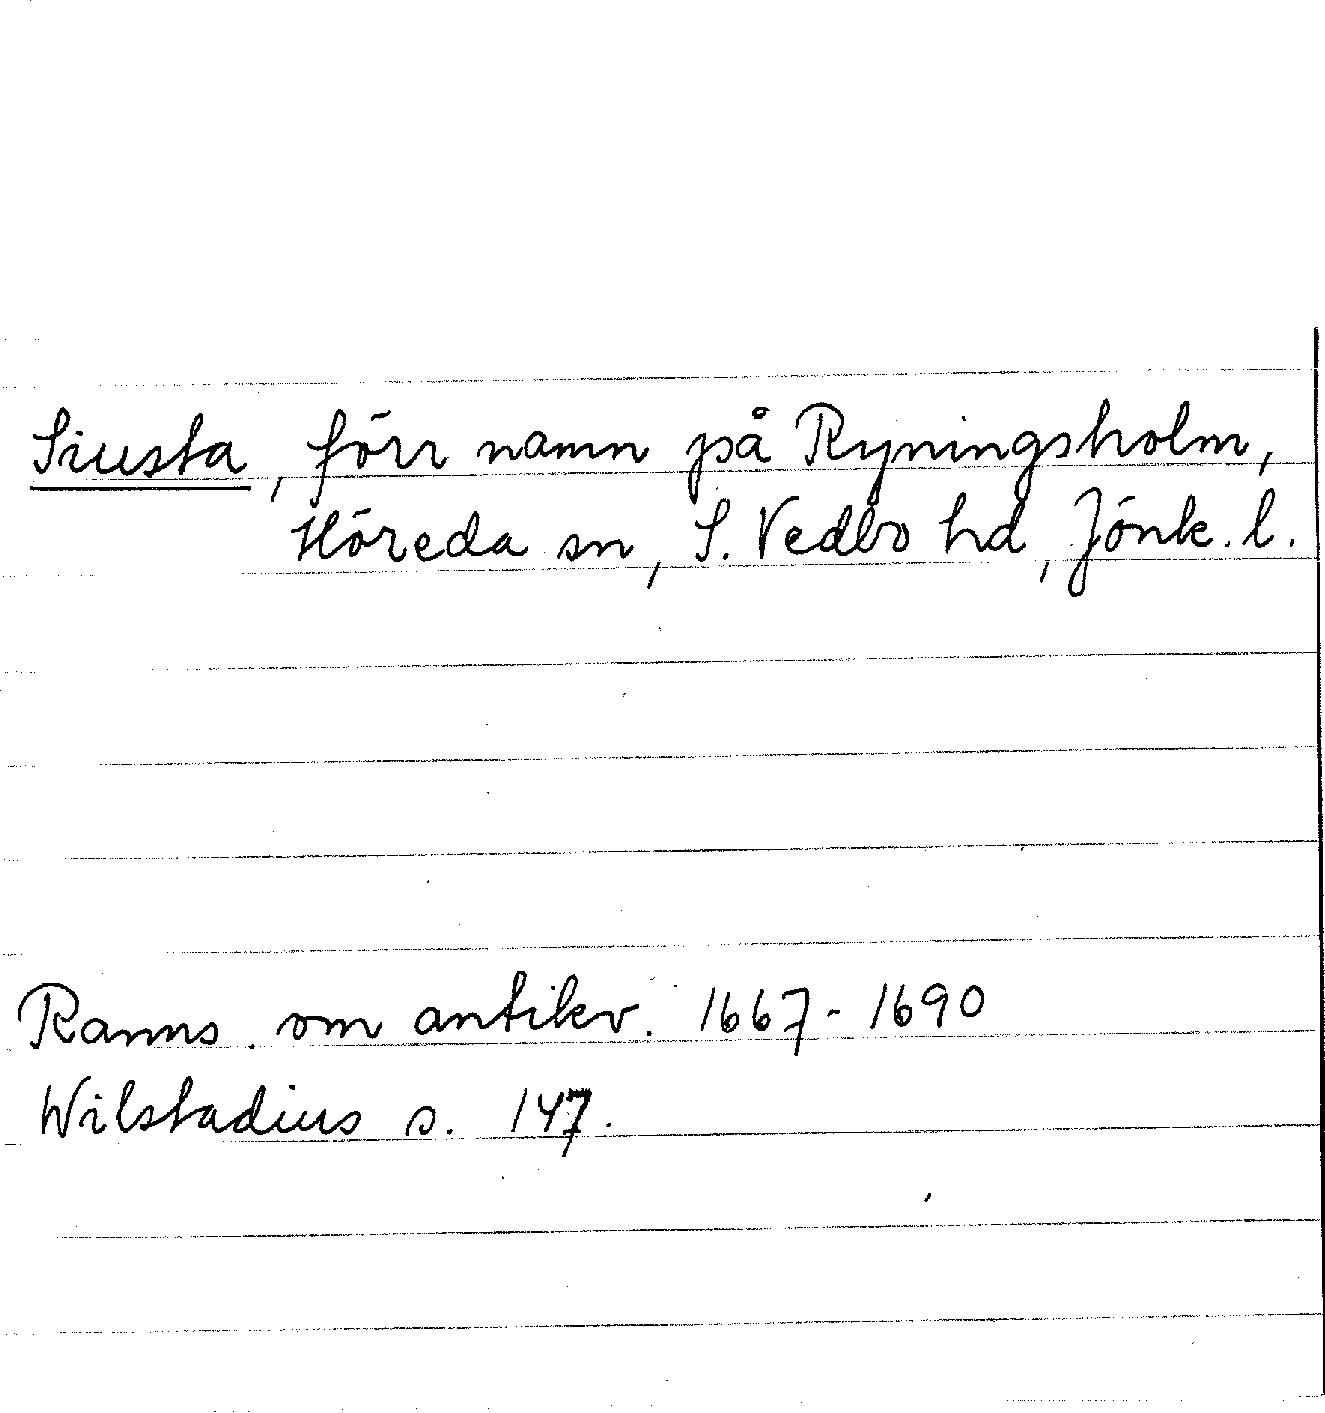 Siusta, förr namn på Ryningsholm,
Höreda sn, S. Vedbo hd, Jönk. l.
Ranns. om antikv. 1667-1690
Wilstadius s. 147.